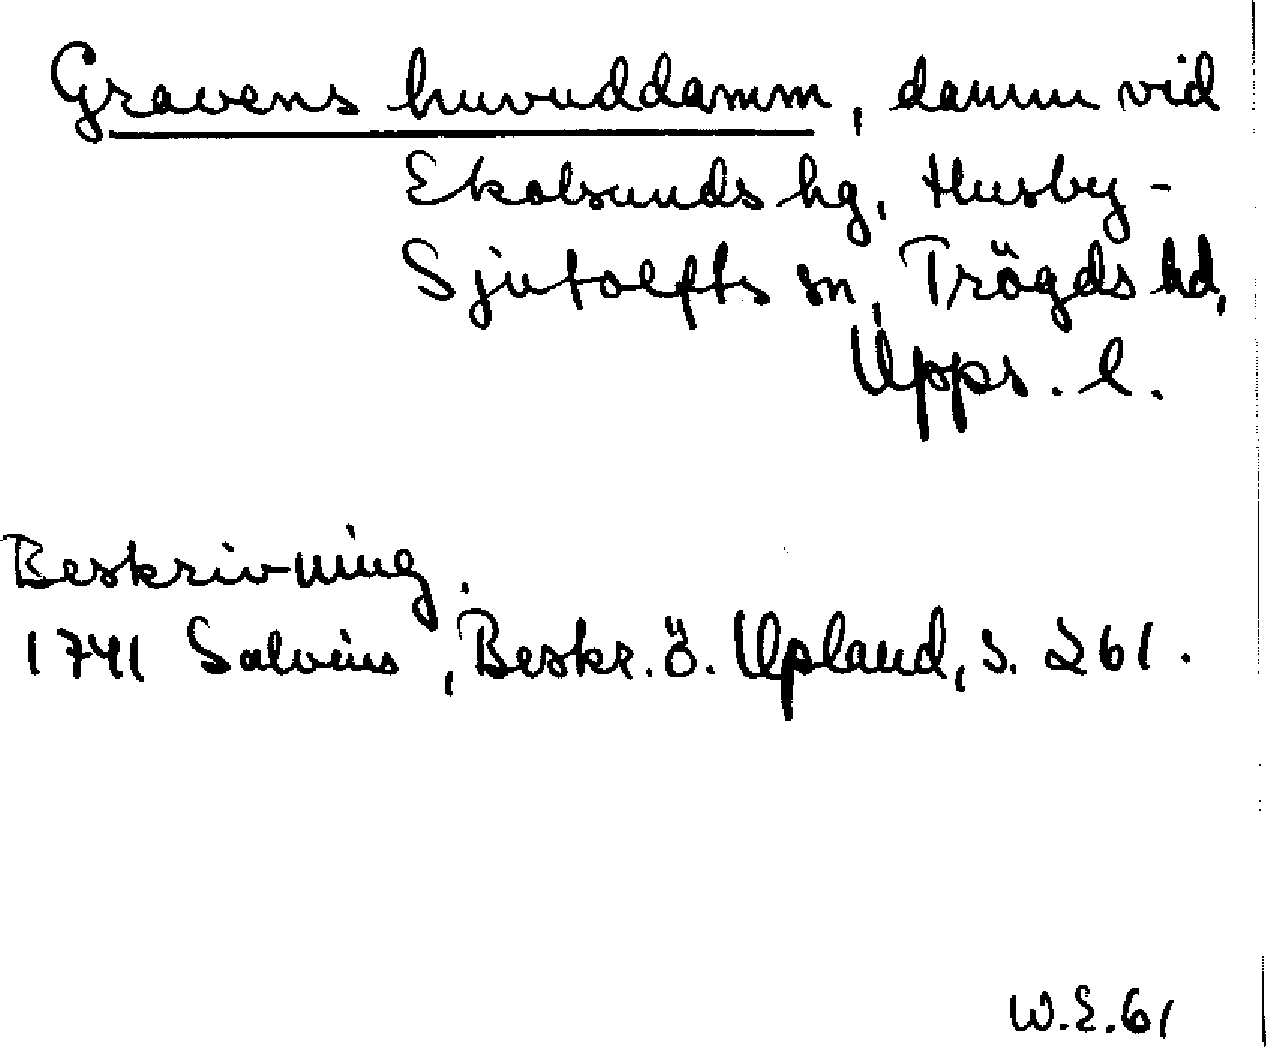 Gravens huvuddamm, damm vid
Ekolsunds hg, Husby-
Sjutolfts sn, Trögds hd,
Upps. l.
Beskrivning.
1741 Salvius, Beskr. ö. Upland, s. 261.
W.E.61